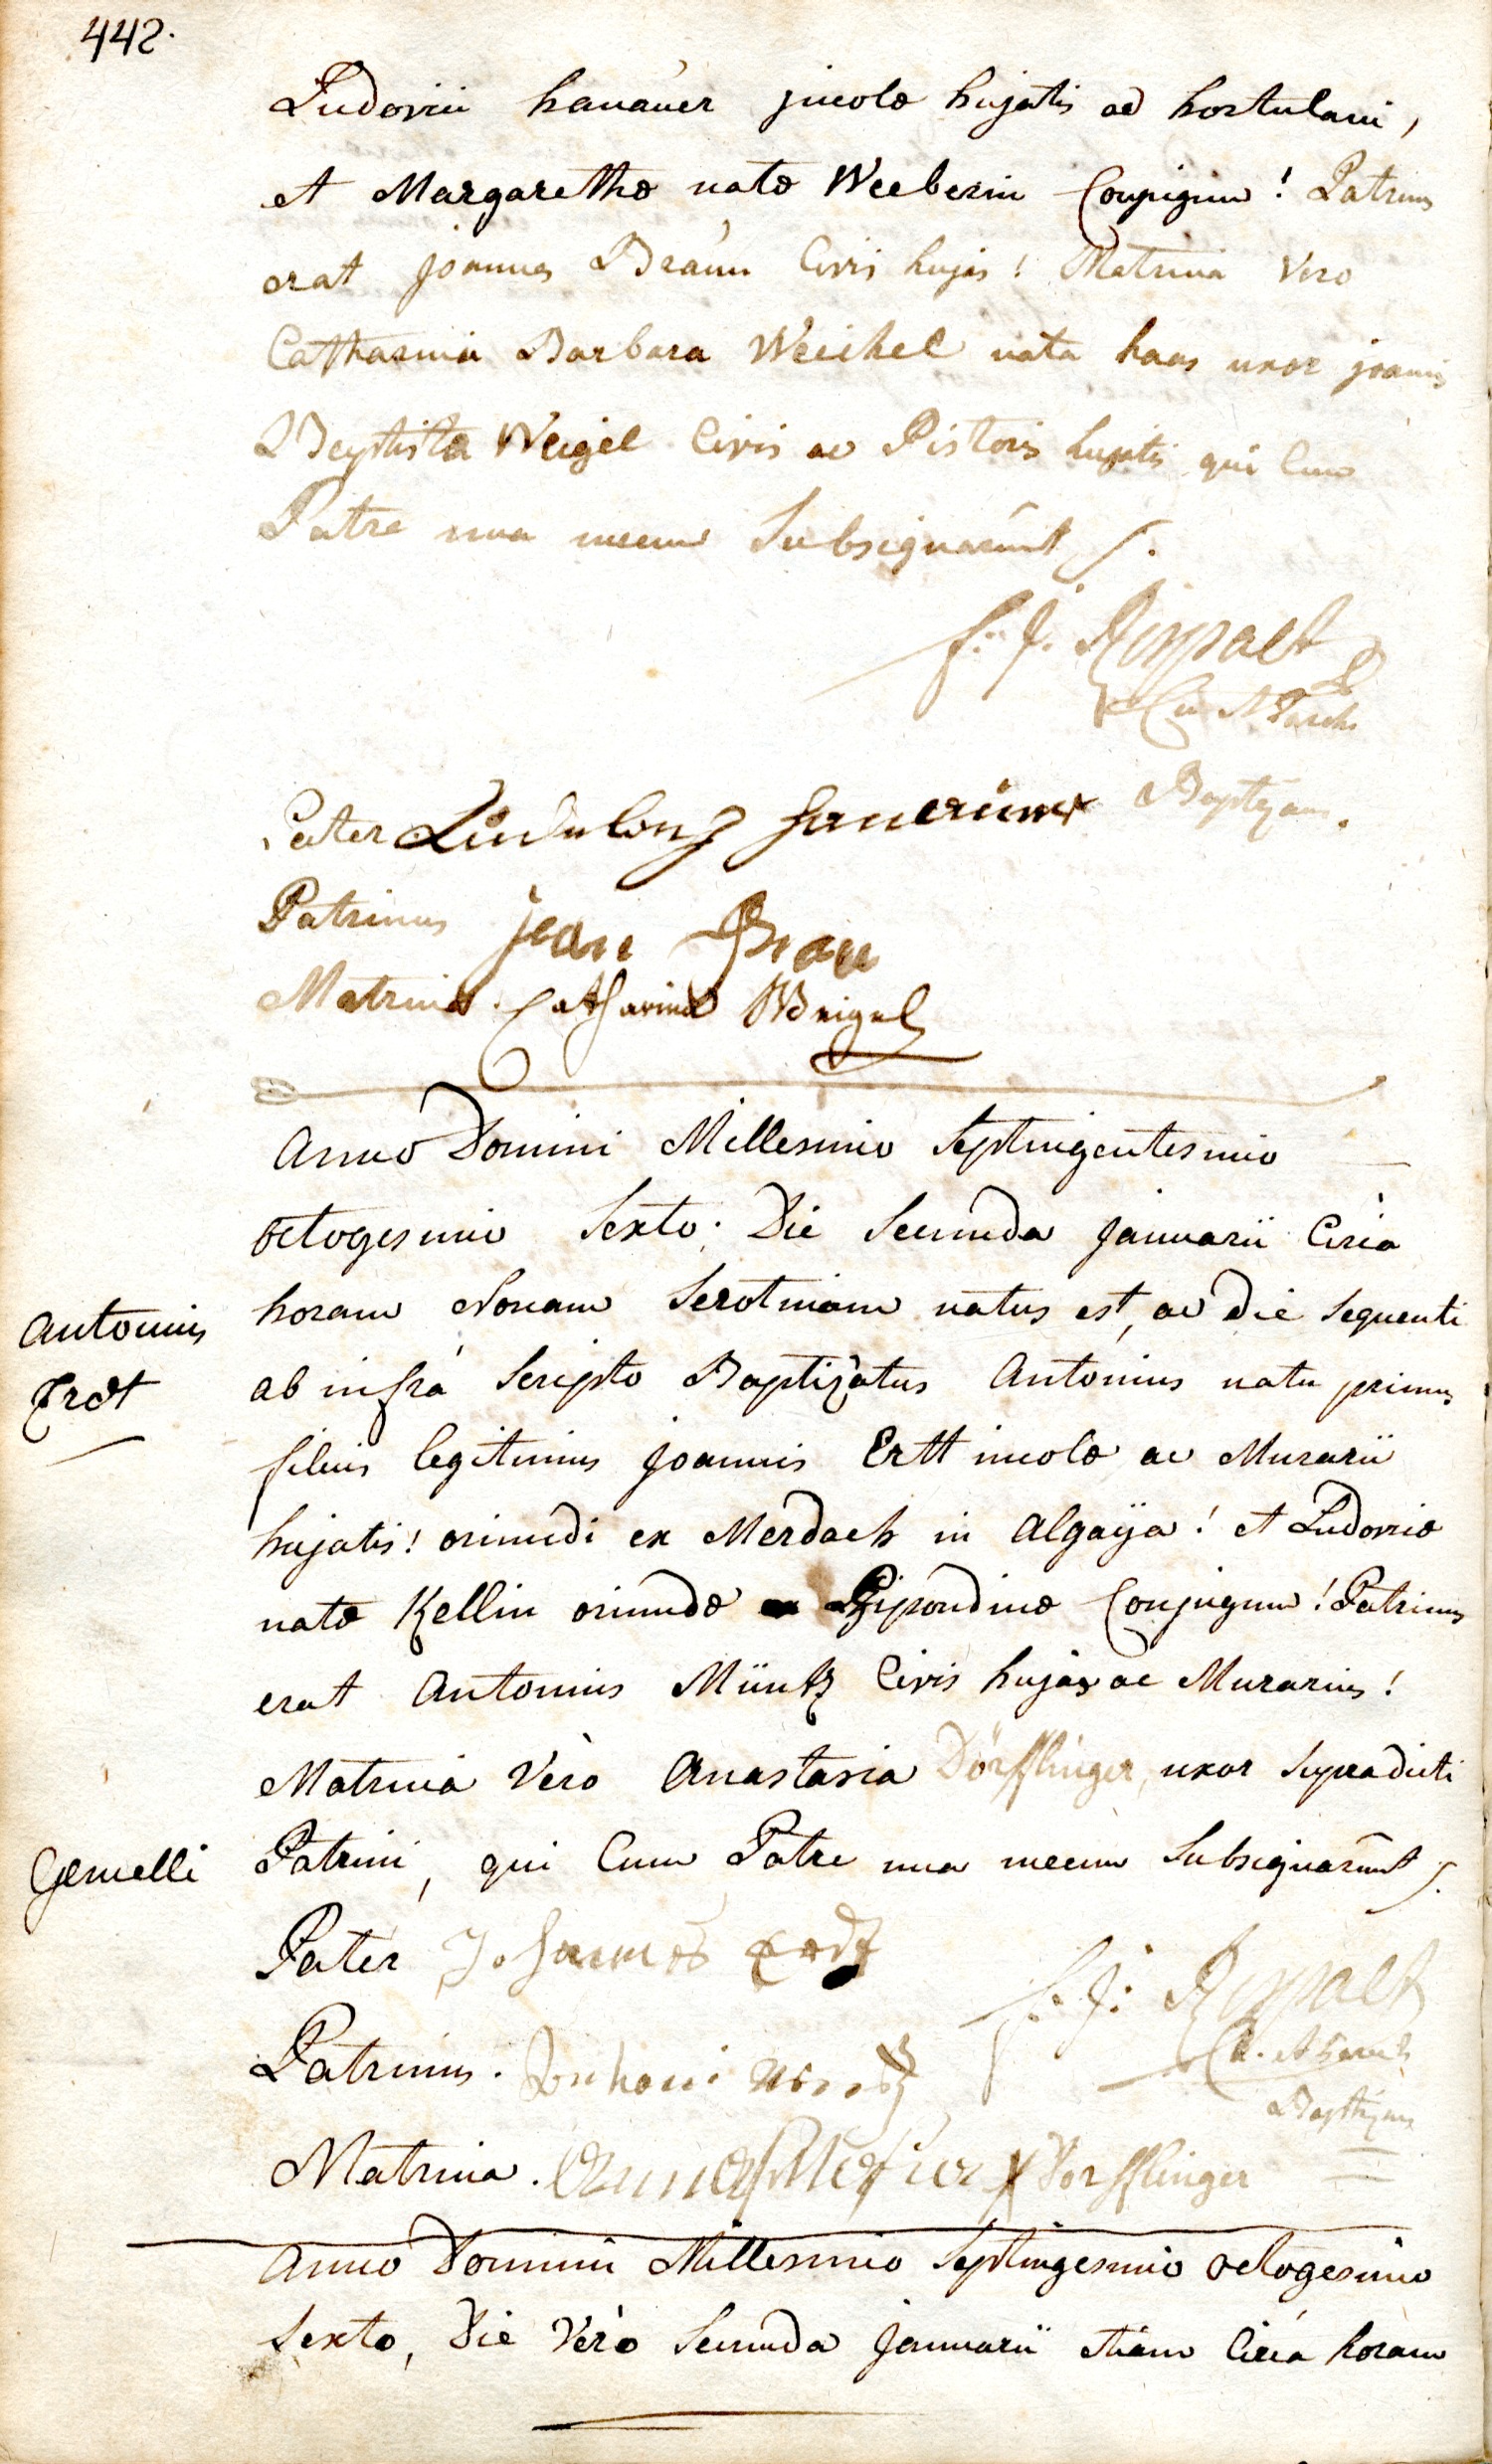 442.
Ludovici hanauer jncolæ hujatis ac hortulani,
et Margarethæ natæ Weeberin Conjugum! Patrinus
erat joannes Braun Civis hujas! Matrina Vero
Catharina Barbara Weichel nata haas uxor joannis
Baptistæ Weigel Civis ac Pistoris hujatis qui Cum
Patre una mecum Subsignarunt.
f: J. Rippalt
Baptizans.
Pater Ludwig
Patrinus jean Brau
Matrina. Catharina Weigel
Anno Domini Millesimo Septingentesimo
octogesimo Sexto. Die Secunda Januarii Circa
horam Nonam Serotinam natus est, ac die sequenti
Antonius
Erdt
ab infrá Scripto Baptizatus Antonius natu primus
filius legitimus joannis Ertt incolæ ac Murarii
hujatis! oriundi ex Merdach in Algaÿa! et Ludovicæ
natæ Kellin oriundæ Bipondinæ Conjugum! Patrinus
erat Antonius Müntz Civis hujas ac Murarius!
Matrina Vero Anastasia Dörfflinger, uxor Supradicti
Gemelli
Patrini, qui Cum Patre una mecum Subsignarunt.
Pater Johannes Erdt
f: J: Rippalt
Patrinus.
Baptizans
Matrina. Dorfflinger
Anno Domini Millesimo Septingesimo octogesimo
Sexto, Die Vero Secunda Januarii etiam Circa horam